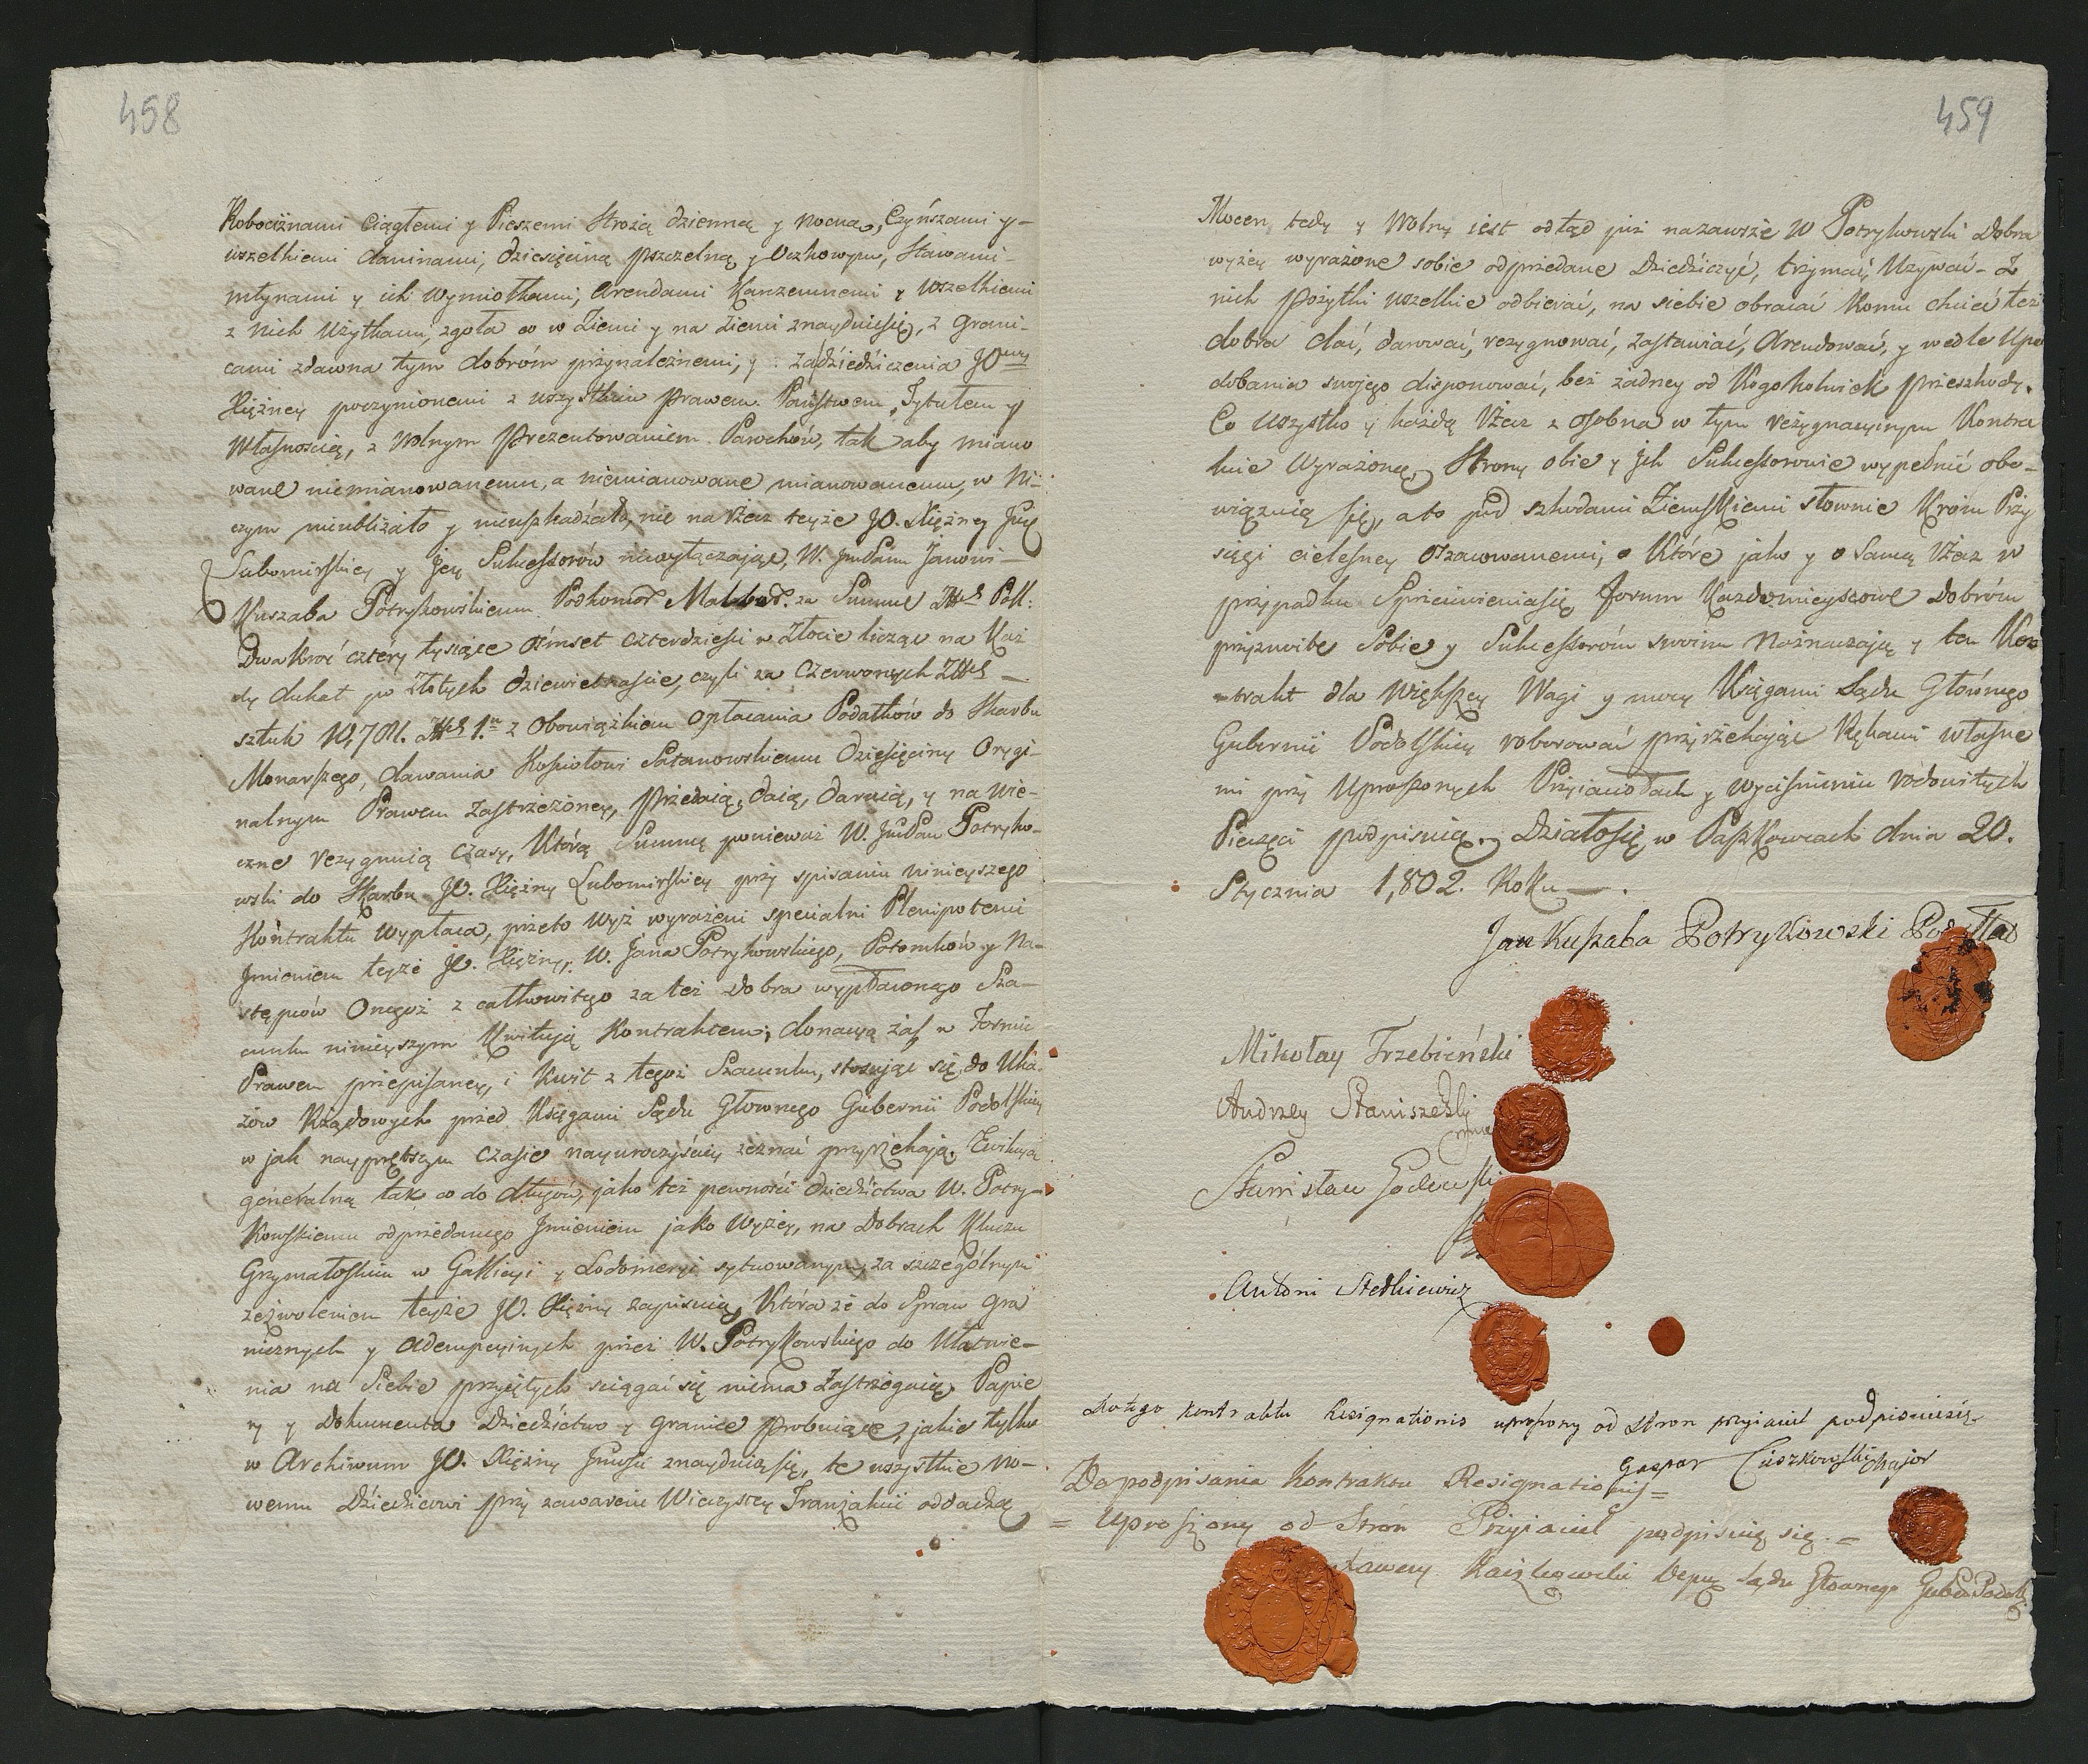 458
Robociznami Ciągłemi y Pieszemi Strożą dzienną y nocną, Czyńszami y
wszelkiemi daninami, dziesięciną pszczelną y Oczkowym, Stawami
młynami y ich wymiołkami, Arendami Karczemnemi y wszelkiemi
z nich Użytkami, zgoła co w Ziemi y na Ziemi znayduiesię, z Grani-
cami zdawna tym dobróm przynależnemi, y zadziedziczenia JO
Xiężney poczynionemi z wszystkim Prawem Państwem, Tytułem y
Własnością, z Wolnym Prezentowaniem Parochów, tak aby miano
wane niemianowanemu, a niemianowane mianowanemu, w Ni-
czym nieubliżało y nieuszkadzało, nic na rzecz teyże JO. Xiężney Jmć
Lubomirskiey y Jey Sukcessorów niewyłączając, W. JmćPanu Janowi
Kuszaba Potrykowskiemu Podkomor za Summę Złł Poll:
Dwakroć cztery tysiące ośmset czterdzieści w Złocie licząc na Każ
dy dukat po Złotych dziewietnaście, czyli za Czerwonych Złł
sztuk 10,781. Złł 1. z Obowiązkiem Opłacania Podatków do Skarbu
Monarszego, dawania Kościołowi Satanowskiemu Dziesięciny Orygi-
nalnym Prawem Zastrzeżoney, Przedaią, daią, daruią, y na Wie-
czne rezygnuią czasy, Którą Summę ponieważ W. JmćPan Potryko-
wski do Skarbu JO. Xiężny Lubomirskiey przy spisaniu ninieyszego
Kontraktu wypłaca, przeto wyż wyrażeni specialni Plenipotenci
Jmieniem teyże JO. Xiężny, W. Jana Potrykowskiego, Potomków y Na-
stępców Onegoż z całkowitego za też Dobra wypłaconego Sza-
cunku ninieyszym Kwituią Kontraktem; donacyą zaś w Formie
Prawem przepisaney, i Kwit z tegoż Szacunku, stosując się do Uka-
zów Rządowych przed Księgami Sądu Głownego Gubernii Podolskiey
w jak nayprętszym czasie nayuroczyściey zeznać przyrzekają. Ewikcyą
generalną tak co do długów, jako też pewności dziedzictwa W. Potry-
kowskiemu odprzedanego Jmieniem jako wyżey, na Dobrach Klucza
Grzymałoskim w Gallicyi y Lodomeryi sytuowanym, za szczególnym
zezwoleniem teyże JO. Xiężny zapisuią, Która że do Spraw Gra
nicznych y Adempcyinych przez W. Potrykowskiego do Ułatwie-
nia na Siebie przyiętych sciągać się niema Zastrzegaią, Papie
ry y Dokumenta Dziedzictwo y Granice Probuiące, jakie tylko
w Archiwum JO. Xiężny Jmć znayduią się, te wszystkie No-
wemu Dziedzicowi przy zawarciu Wieczystey Tranzakcii oddadzą
459
Mocen tedy y Wolny iest odtąd już nazawsze W Potrykowski Dobra
wyżey wyrażone sobie odprzedane Dziedziczyć, trzymać, Używać - Z
nich Pożytki wszelkie odbierać, na siebie obracać Komu chcieć też
dobra dać, darować, rezygnować, zastawiać, Arendować, y wedle Upo
dobania swojego disponować, bez żadney od Kogokolwiek Przeszkody.
Co wszystko y każdą rzecz z osobna w tym rezygnacyinym Kontra
kcie Wyrażoną, Strony obie y Jch Sukcessorowie wypełnić obo-
wiązuią się, a to pod szkodami Ziemskiemi słownie Kròm Przy
sięgi cielesney oszacowanemi, o Które jako y o Samą rzecz w
przypadku Sprzeciwieniasię Forum Każdomieyscowe Dobróm
przyzwoite Sobie y Sukcessorów swoim Naznaczają y ten Kon
trakt dla Większey Wagi y mocy Księgami Sądu Głównego
Gubernii Podolskiey roborować przyrzekając Rękami własne
mi przy Uproszonych Przyiaciołach y wyciśnieniu rodowitych
Pieczęci podpisuią. Działosię w Paszkowcach dnia 20.
Stycznia 1,802. Roku.
Jan Kuszaba Potrykowski
Mikołay Trzebieński
Andrzey Staniszeski
Stanisław Godewski
Antoni Stetkiewicz
Dotego Kontraktu Resignationis uproszony od Stron przyiaciel podpisuiesię
Gaspar Cieszkowski Major
Do podpisania Kontraktu Resignationis =
= Uproszony od Strón Przyiaciel podpisuię się. =
Sądu Głownego Gube Podols